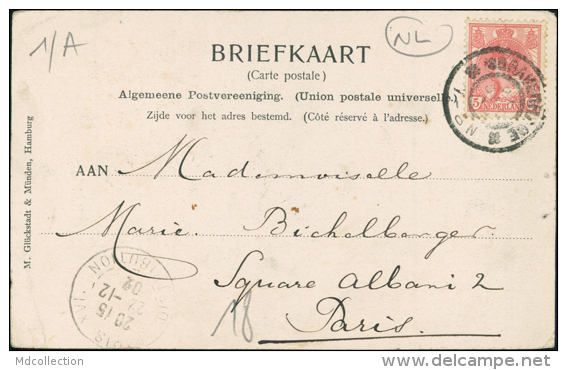 1/A
NL
BRIEFKAART
(Carte postale)
Algemeene Postvereeniging. (Union postale universelle
Zijde voor het adres bestemd. (Côté réservé à l'adresse.)
5
NEDERLAND
AAN Mademoiselle
Marie. Bichelberger
Square Albani 2
Paris.
18
M. Glückstadt & Münden, Hamburg
20 15
22-12
02
Mdcollection
delcampe.net